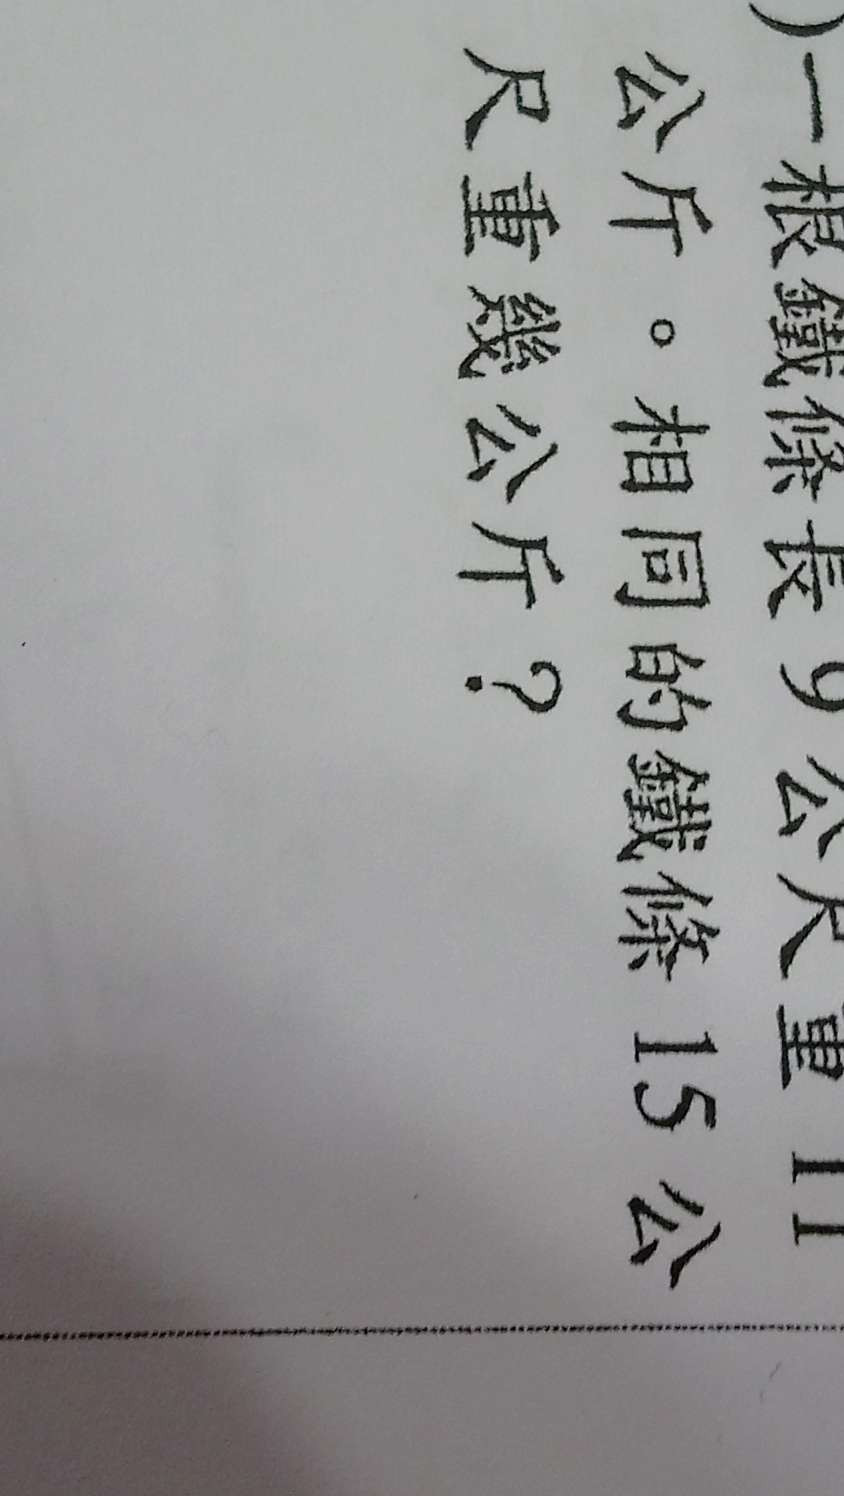 )一根鐵條長9公尺重11
公斤。相同的鐵條15公
尺重幾公斤？